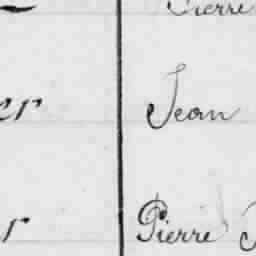 Pierre
er Jean
r Pierre